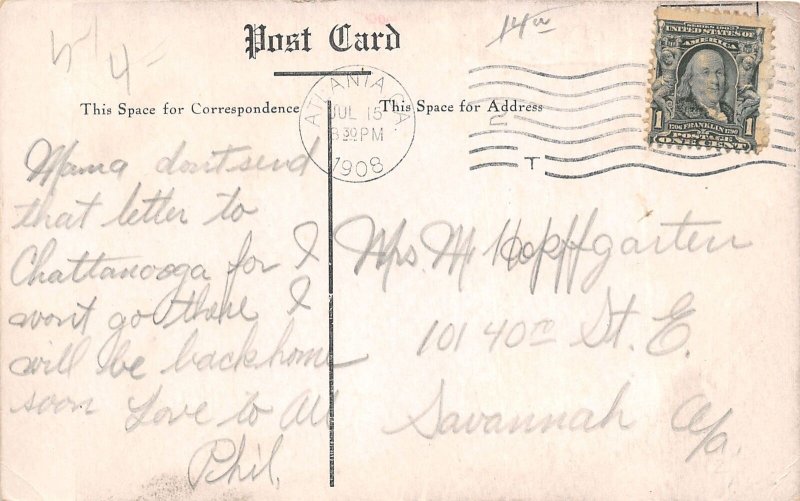 5/4-
14
Post Card
This Space for Correspondence
This Space for Address
ATLANTA, GA.
JUL 15
8 30 PM
1908
2
T
SERIES 1902
UNITED STATES OF
AMERICA
1706 FRANKLIN 1790
POSTAGE
1 ONE CENT 1
Mama dont send
that letter to
Chattanooga for I
wont go there I
will be back home
soon Love to All
Phil.
Mrs. M Hopffgarten
101 40th St. E.
Savannah Ga.